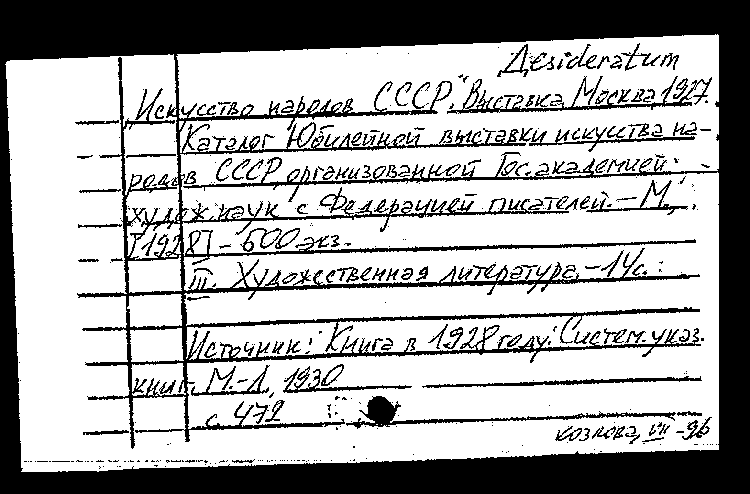 Desideratum
„Искусство народов СССР," Выставка, Москва, 1927.
Каталог Юбилейной выставки искусства на-
родов СССР, организованной Гос. академией
худож. наук с Федерацией писателей. — М.,
[1928] — 600 экз.
III. Художественная литература. — 14с.:
Источник: Книга в 1928 году: Систем. указ.
книг. М.-Л., 1930
с. 472
Козлова, VII -96